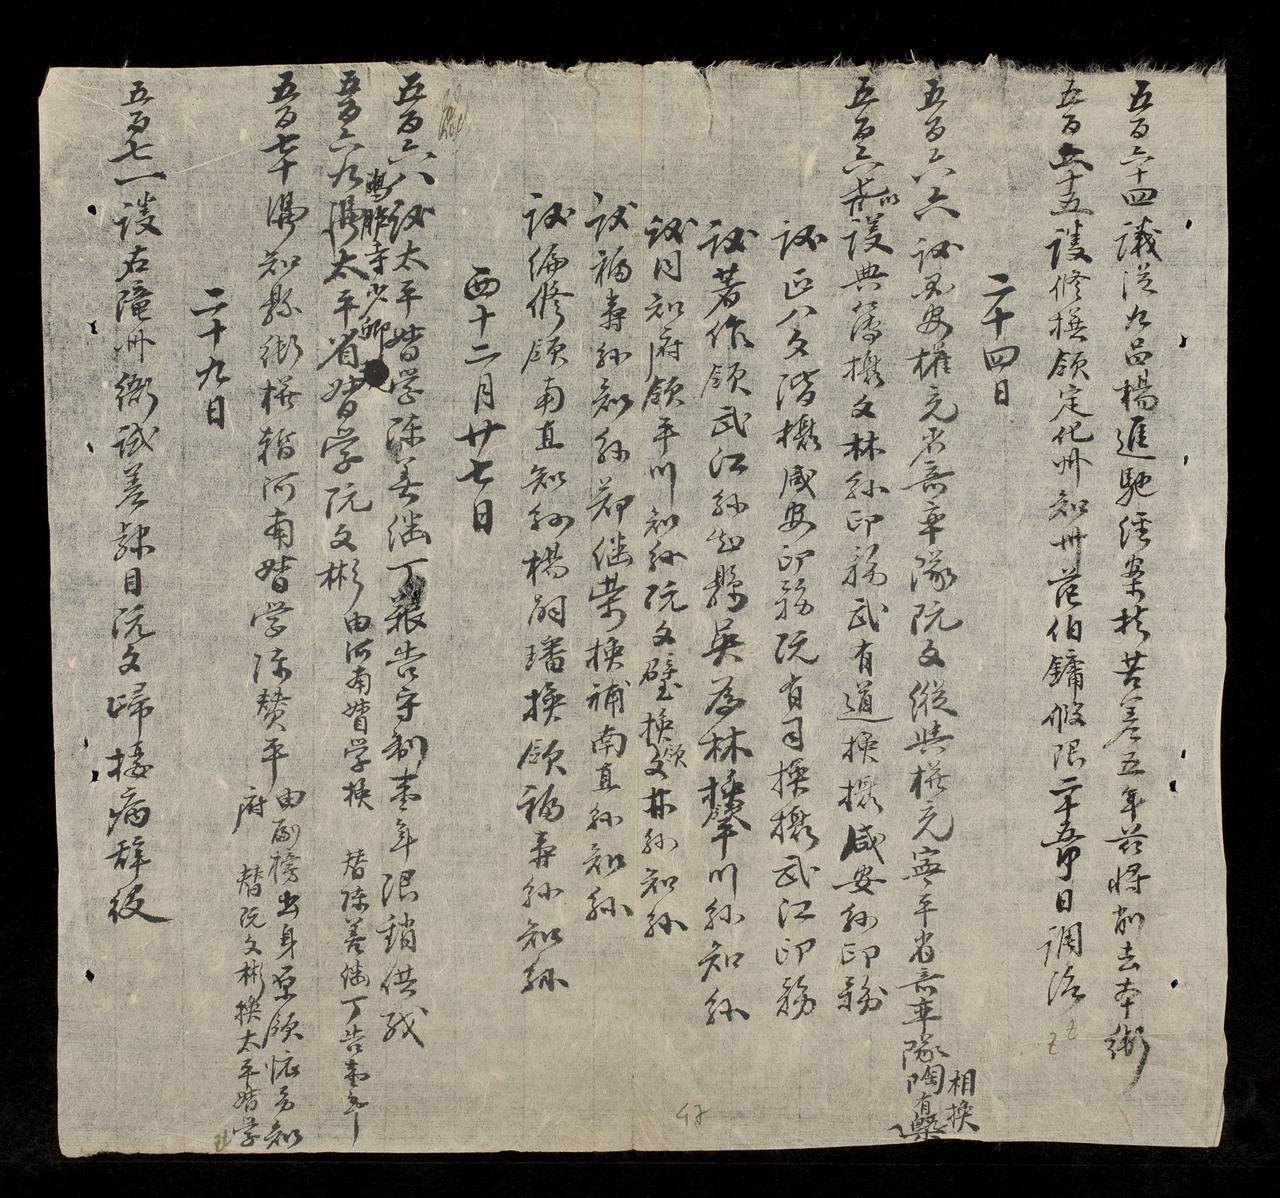 五百六十四議從九品楊進馳經案扵苦差五年茲將削去本衔
五百六十五議修撰領定化州知州范伯鏞假限二十五日調治
二十四日
五百六六 議興安權充省嘉車隊阮文縱與權充寧平省嘉車隊陶有槩 相換
五百六十七議典簿攝文林縣印務武有道換攝咸安縣印務
議正八文階攝咸安印務阮有司換攝武江印務
議著作領武江縣知縣吳為林換領平川縣知縣
議同知府領平川知縣阮文璧換領文林縣知縣
議福壽縣知縣鄭繼榮換補南直縣知縣
議編修領南直知縣楊嗣璠換領福壽縣知縣
西十二月廿七日
五百六八 議太平督學陳善繼丁艱告守制壹年限銷供職
鴻臚寺少卿
五百六九 太平省督學阮文彬 由河南督學換 替陳善繼丁告壹年
五百七十 知縣衔權 河南督學陳贊平 由副榜出身原領 知府 替阮文彬換太平督學
二十九日
五百七一議右隴州衙試差隸目阮文歸接病辞役